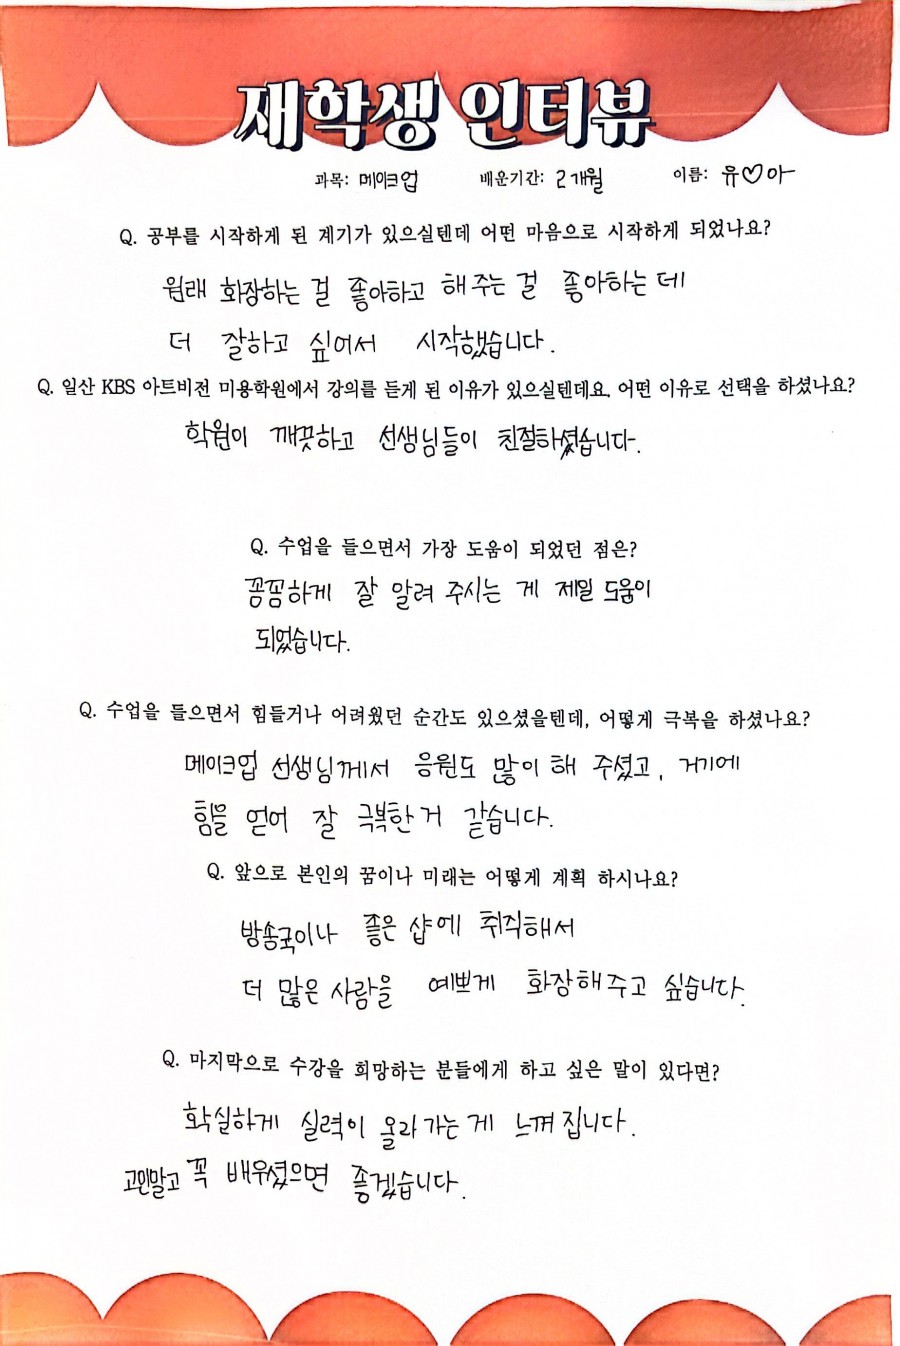 재학생 인터뷰
과목: 메이크업 배운기간: 2개월 이름: 유♡아
Q. 공부를 시작하게 된 계기가 있으실텐데 어떤 마음으로 시작하게 되었나요?
원래 화장하는 걸 좋아하고 해주는 걸 좋아하는데
더 잘하고 싶어서 시작했습니다.
Q. 일산 KBS 아트비전 미용학원에서 강의를 듣게 된 이유가 있으실텐데요. 어떤 이유로 선택을 하셨나요?
학원이 깨끗하고 선생님들이 친절하셨습니다.
Q. 수업을 들으면서 가장 도움이 되었던 점은?
꼼꼼하게 잘 알려 주시는 게 제일 도움이
되었습니다.
Q. 수업을 들으면서 힘들거나 어려웠던 순간도 있으셨을텐데, 어떻게 극복을 하셨나요?
메이크업 선생님께서 응원도 많이 해 주셨고, 거기에
힘을 얻어 잘 극복한 거 같습니다.
Q. 앞으로 본인의 꿈이나 미래는 어떻게 계획 하시나요?
방송국이나 좋은 샵에 취직해서
더 많은 사람을 예쁘게 화장해주고 싶습니다.
Q. 마지막으로 수강을 희망하는 분들에게 하고 싶은 말이 있다면?
확실하게 실력이 올라가는 게 느껴집니다.
고민말고 꼭 배우셨으면 좋겠습니다.